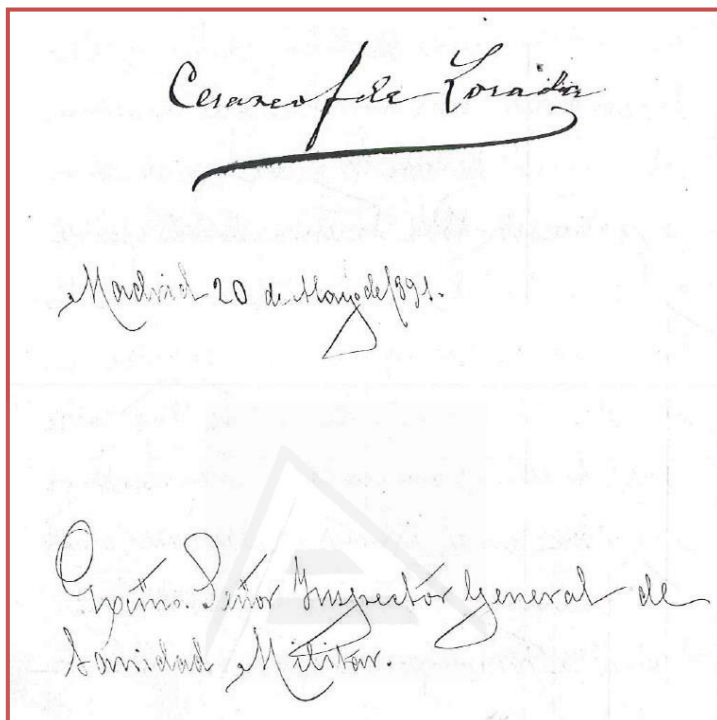 Cesareo f de Losada
Madrid 20 de Mayo de 1891.
Excmo. Señor Inspector General de
Sanidad Militar.